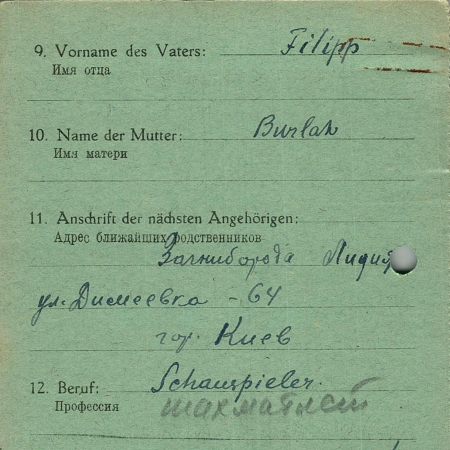 9. Vorname des Vaters: Filipp
Имя отца
10. Name der Mutter: Burlak
Имя матери
11. Anschrift der nächsten Angehörigen:
Адрес ближайших родственников
Загниборода Лидия
ул. Димеевка - 64
гор. Киев
12. Beruf: Schauspieler.
Профессия шахматист